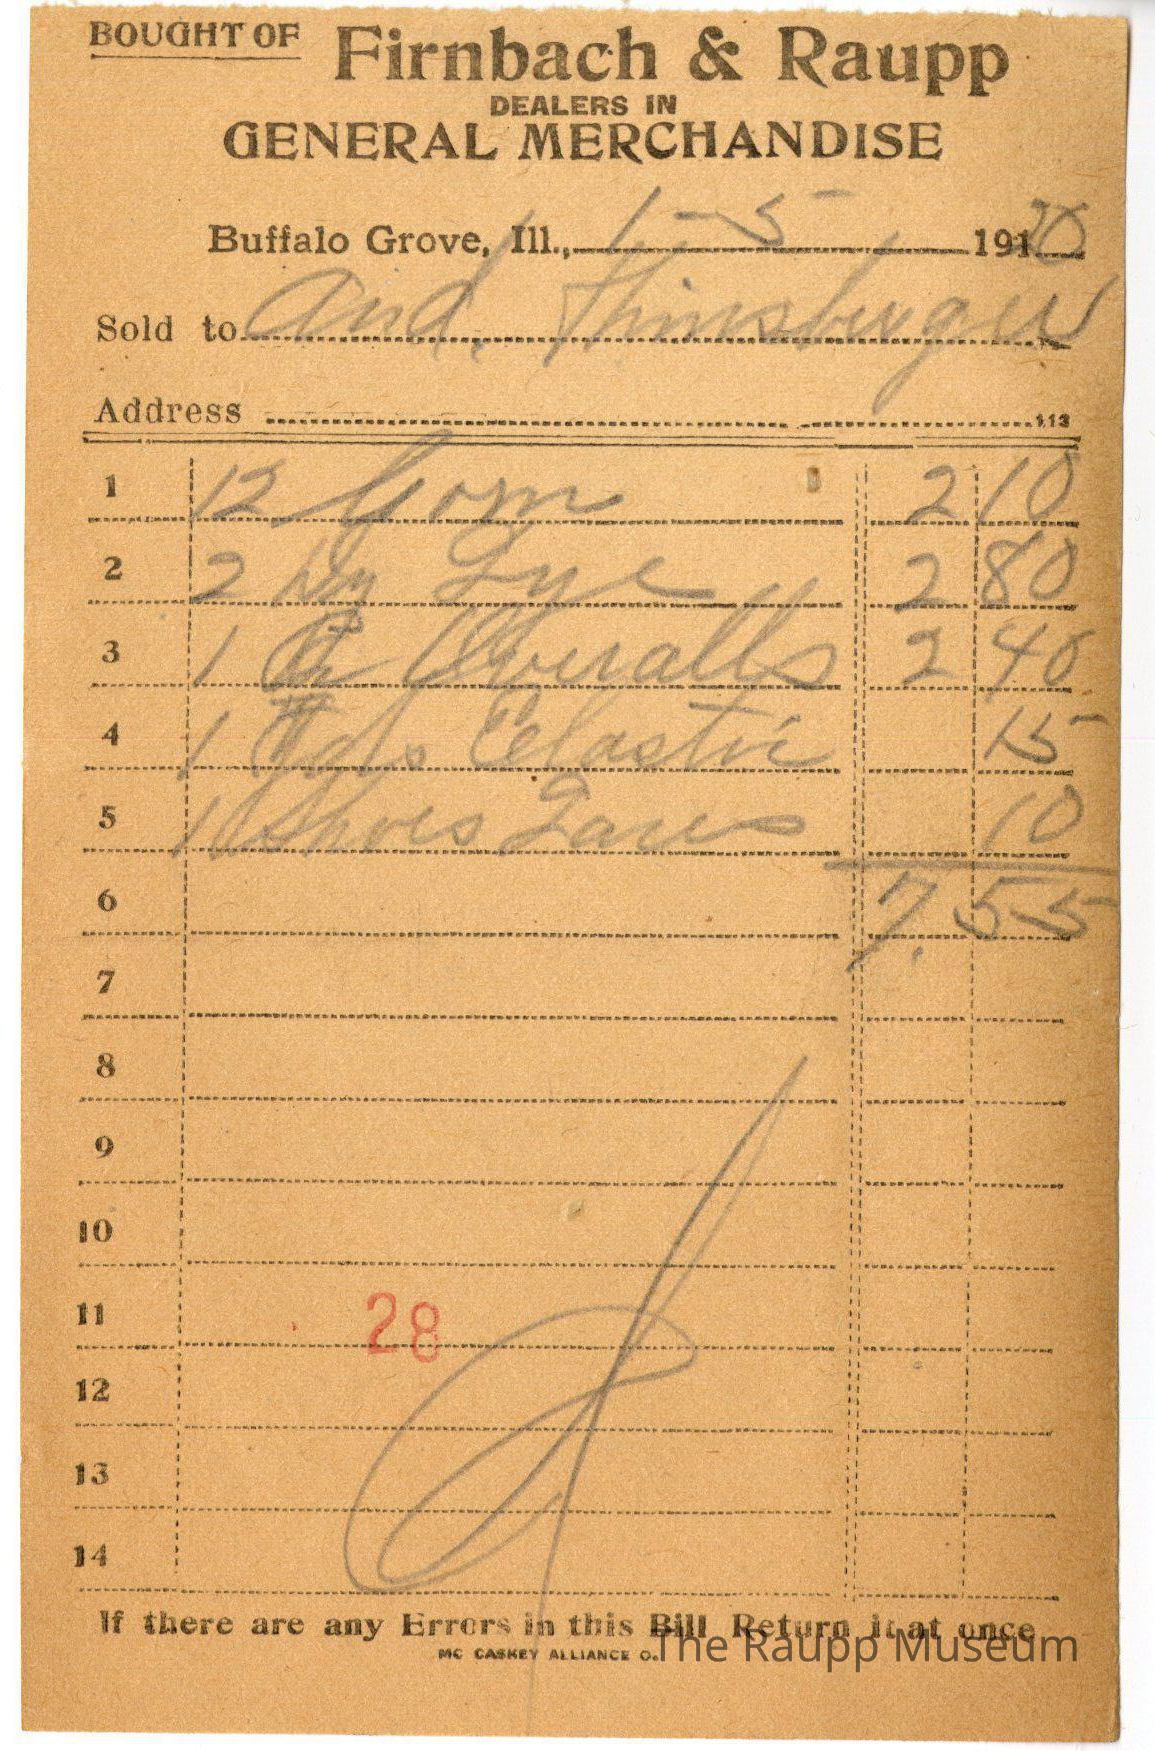 BOUGHT OF Firnbach & Raupp
DEALERS IN
GENERAL MERCHANDISE
Buffalo Grove, Ill., 1-5 191 20
Sold to And.
Address 113
1 12 Corn 2 10
2 2 Dz Lye 2 80
3 1 Pr Overalls 2 40
4 1 Yds Elastic 15
5 1 Shoes Laces 10
6 7.55
7
8
9
10
11 28
12
13
14
If there are any Errors in this Bill Return it at once
MC CASKEY ALLIANCE O.
The Raupp Museum